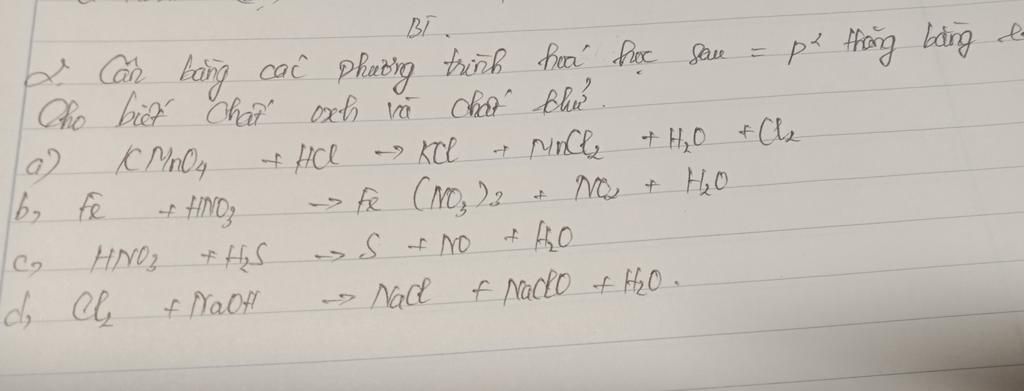 BT.
2. Cân bằng các phương trình hoá học sau = p² thăng bằng e
Cho biết chất oxh và chất khử.
a) KMnO₄ + HCl → KCl + MnCl₂ + H₂O + Cl₂
b, Fe + HNO₃ → Fe (NO₃)₃ + NO₂ + H₂O
c, HNO₃ + H₂S → S + NO + H₂O
d, Cl₂ + NaOH → NaCl + NaClO + H₂O.